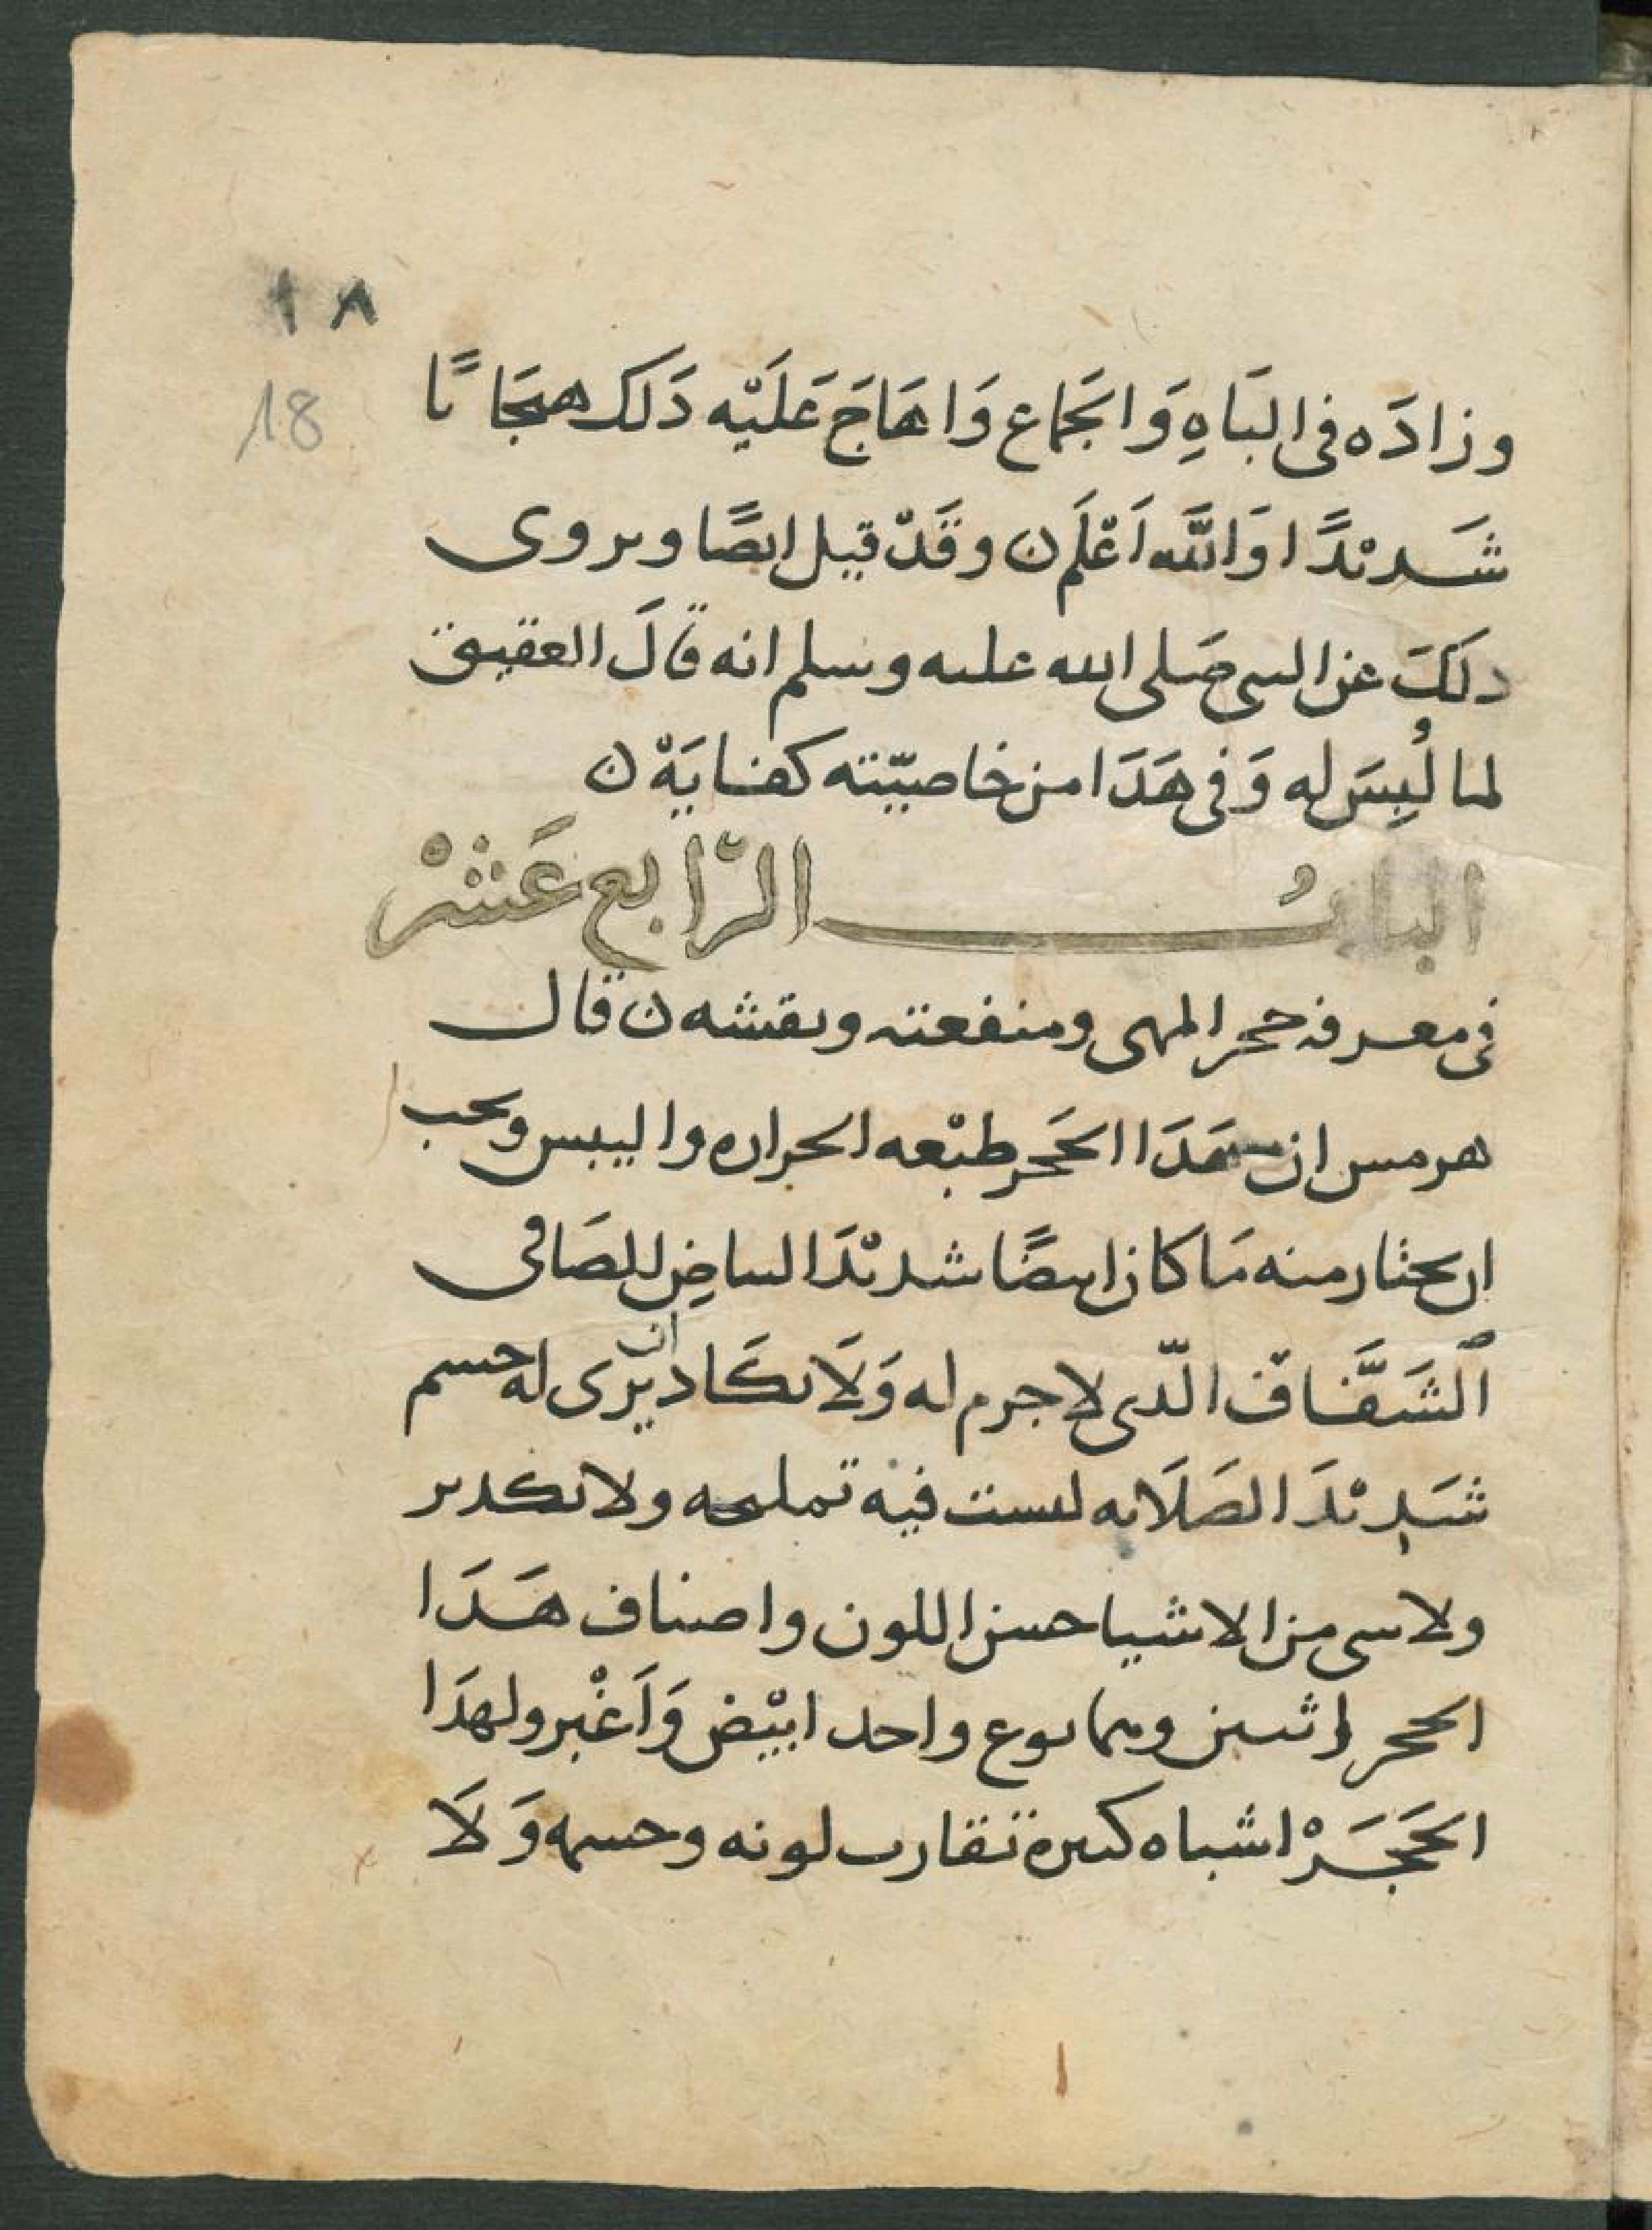 ١٨
18
وزادَه فى البَاهِ وَالجَماع وَاهَاجَ عَلَيْه دَلك هىجَانًا
شَدىْدًا وَاللَّه اَعْلَم ن وقَدْ قيل اىضًا وىروى
دلكَ عن النبى صَلى الله علىه وسلم انه قالَ العقيق
لما لُبِسَ له وَفى هَدَا من خاصيّته كفايَةْ ن
البابُ الرّابع عَشرْ
فى معرفه حجر المهى ومنفعته ونقشه ن قال
هرمس ان هَدَا الحَجر طبْعه الحراره واليبس وىجب
ان ىختار منه مَا كان اىىضًا شدىْدَ البىاضِ للصَافى
الشَفَّاف الّدى لا جرم له وَلَا ىكَاد ان يرى له جسم
شَدىْدَ الصَلَابه لىست فيْه تمليحه ولا تكدىر
ولا سى من الاشيا حسن اللون واصناف هَدَا
الحجر اثنىن وهما نوع واحد ابيْض وَاَغْبر ولهدَا
الحَجَرْ اشباه كثىرة تقارب لونه وجسمه وَلَا